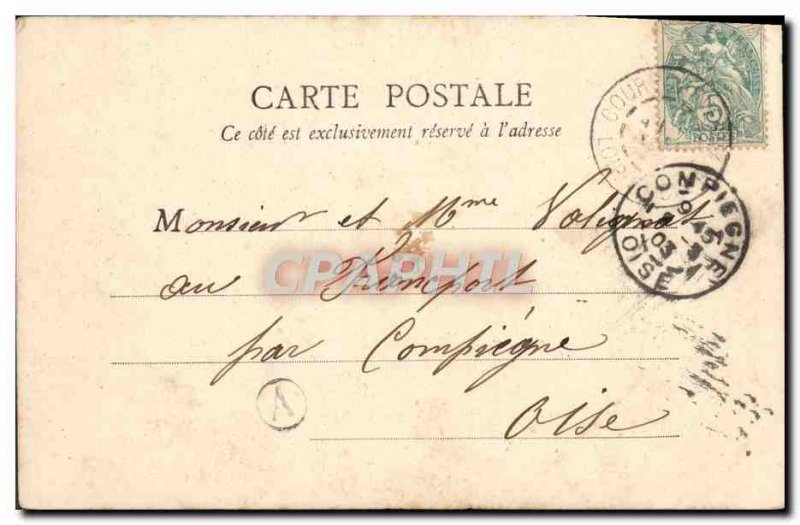 CARTE POSTALE
Ce côté est exclusivement réservé à l'adresse
Monsieur et Mme Volignat
au Francport
par Compiègne
Oise
A
COMPIEGNE
OISE
9 45
03
5
POSTES
COUR
CPAPHIL